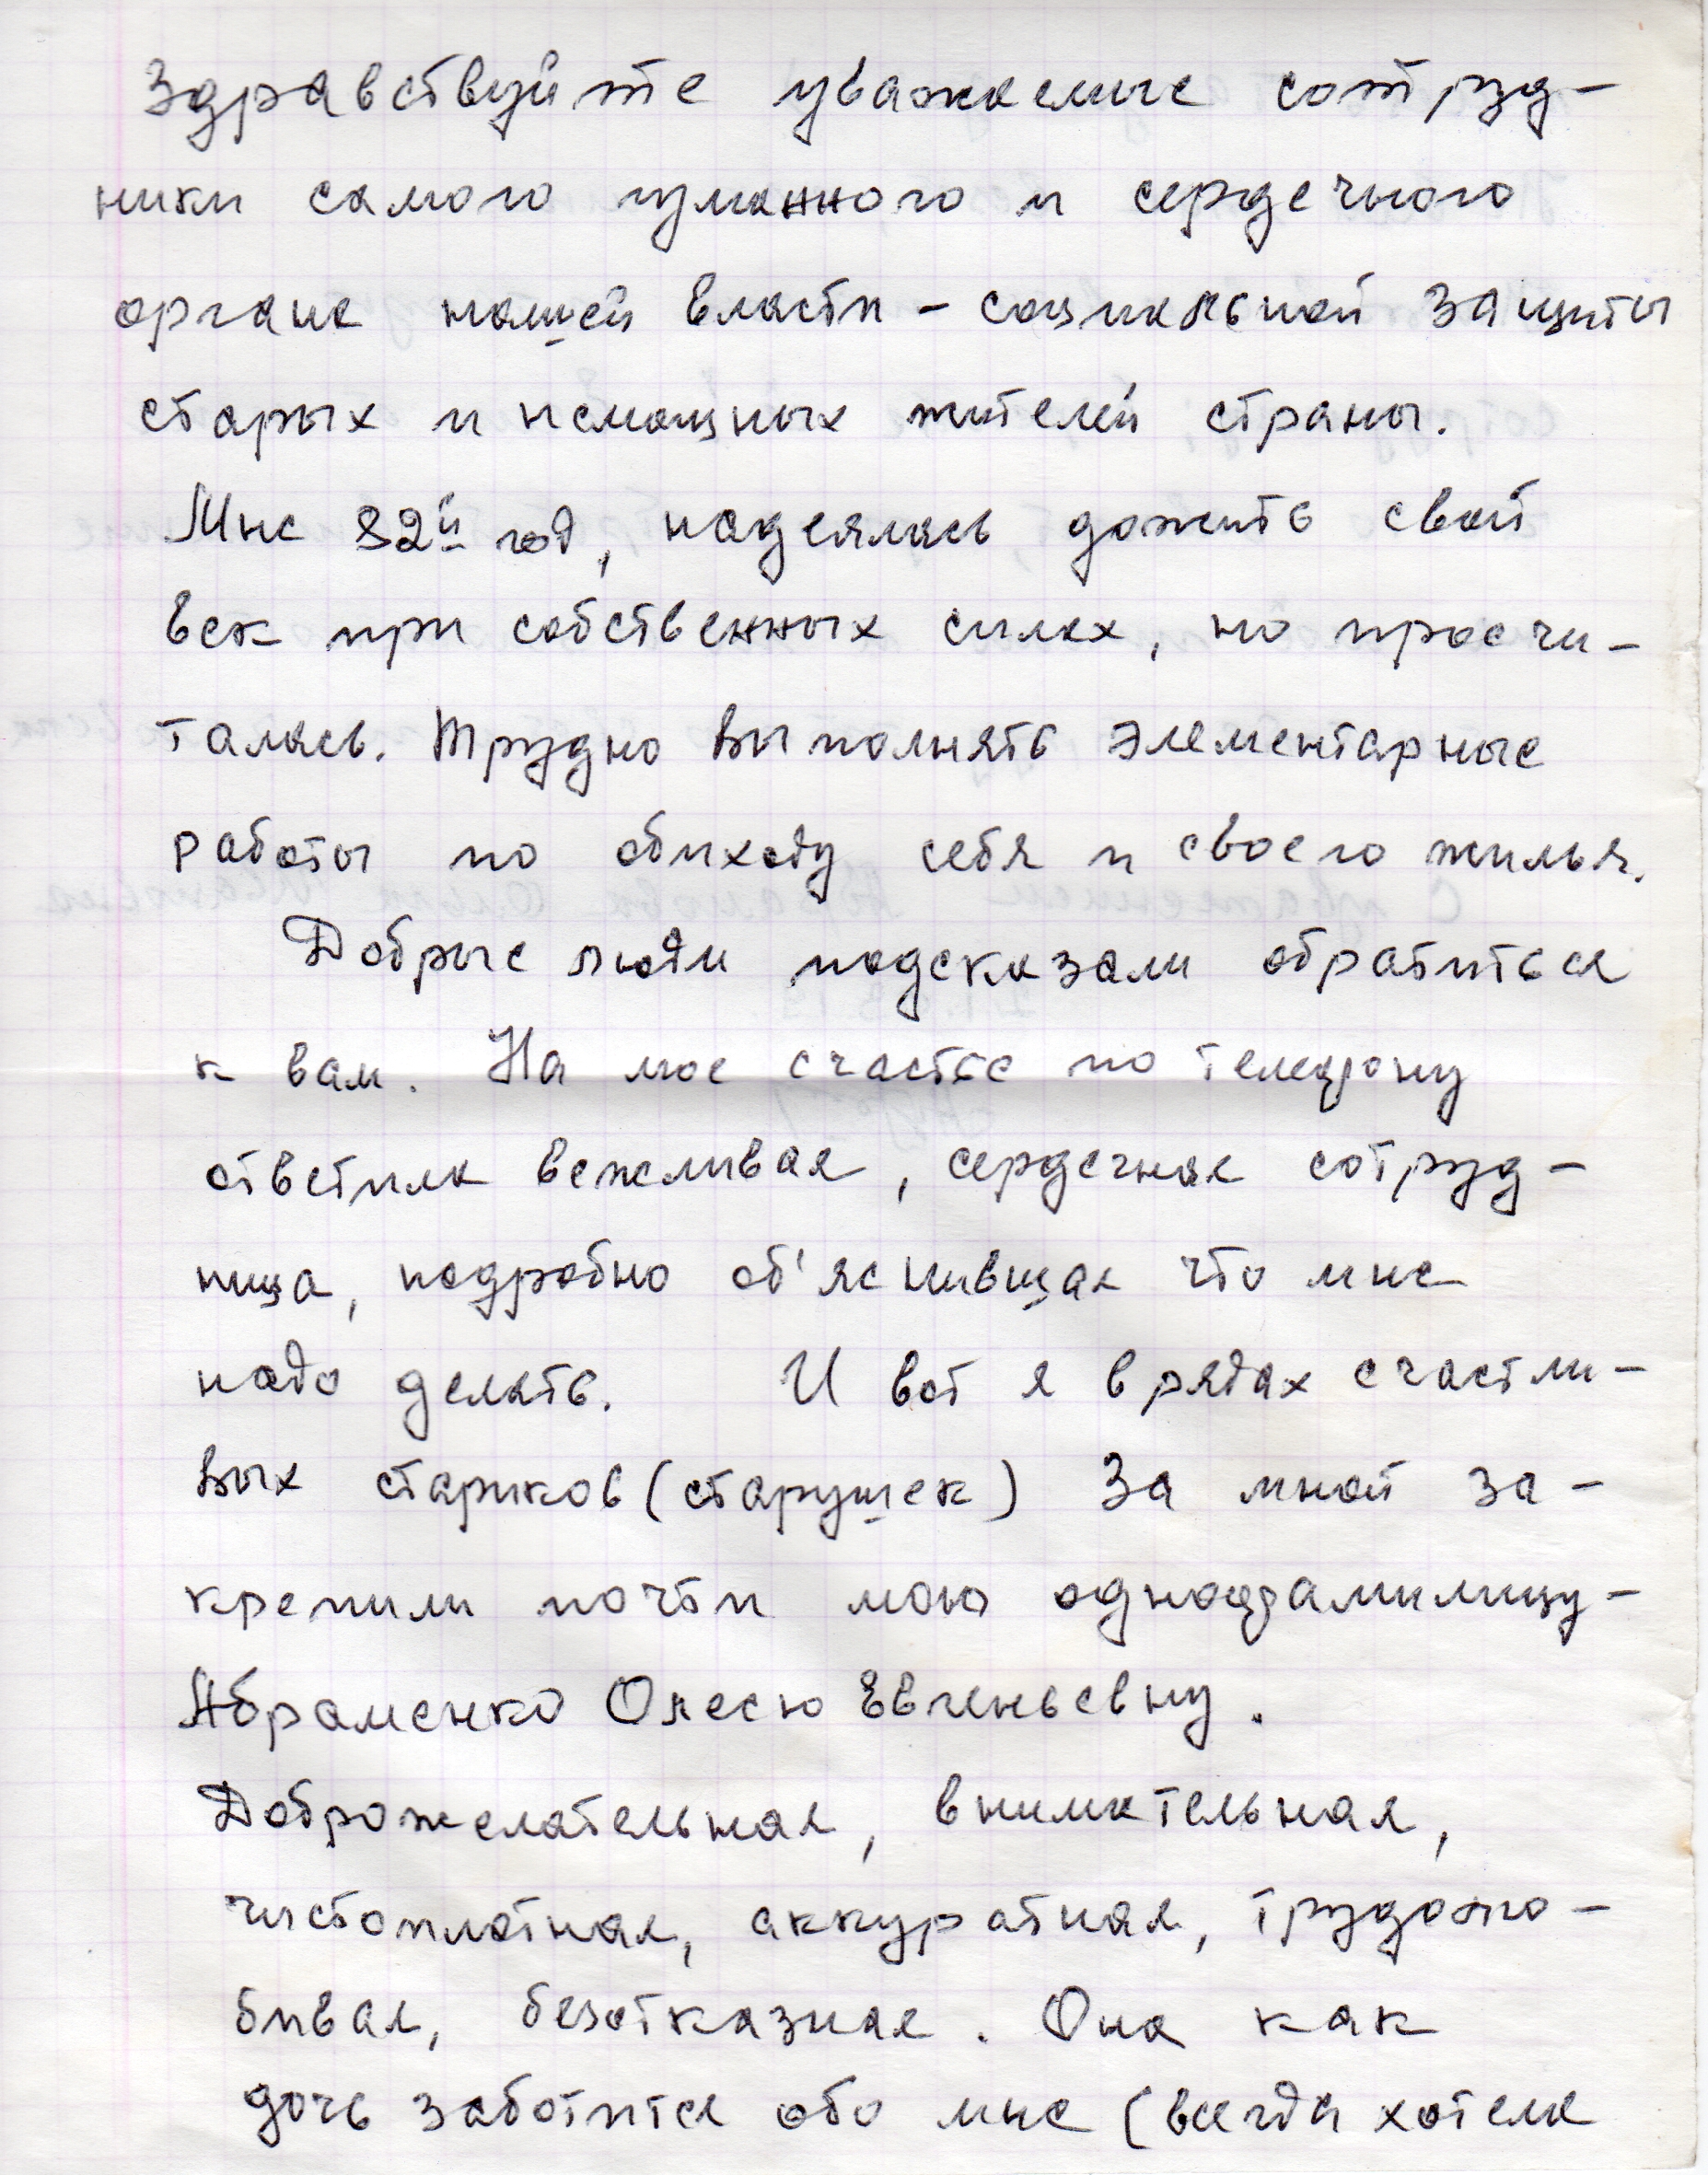 Здравствуйте уважаемые сотруд-
ники самого гуманного и сердечного
органа нашей власти - социальной защиты
старых и немощных жителей страны.
Мне 82й год, надеялась дожить свой
век при собственных силах, но просчи-
талась. Трудно выполнять элементарные
работы по обиходу себя и своего жилья.
Добрые люди подсказали обратиться
к вам. На мое счастье по телефону
ответила вежливая, сердечная сотруд-
ница, подробно об'яснившая что мне
надо делать. И вот я в рядах счастли-
вых стариков (старушек) За мной за-
крепили почти мою однофамилицу-
Абраменко Олесю Евгеньевну.
Доброжелательная, внимательная,
чистоплотная, аккуратная, трудолю-
бивая, безотказная. Она как
дочь заботится обо мне (всегда хотела